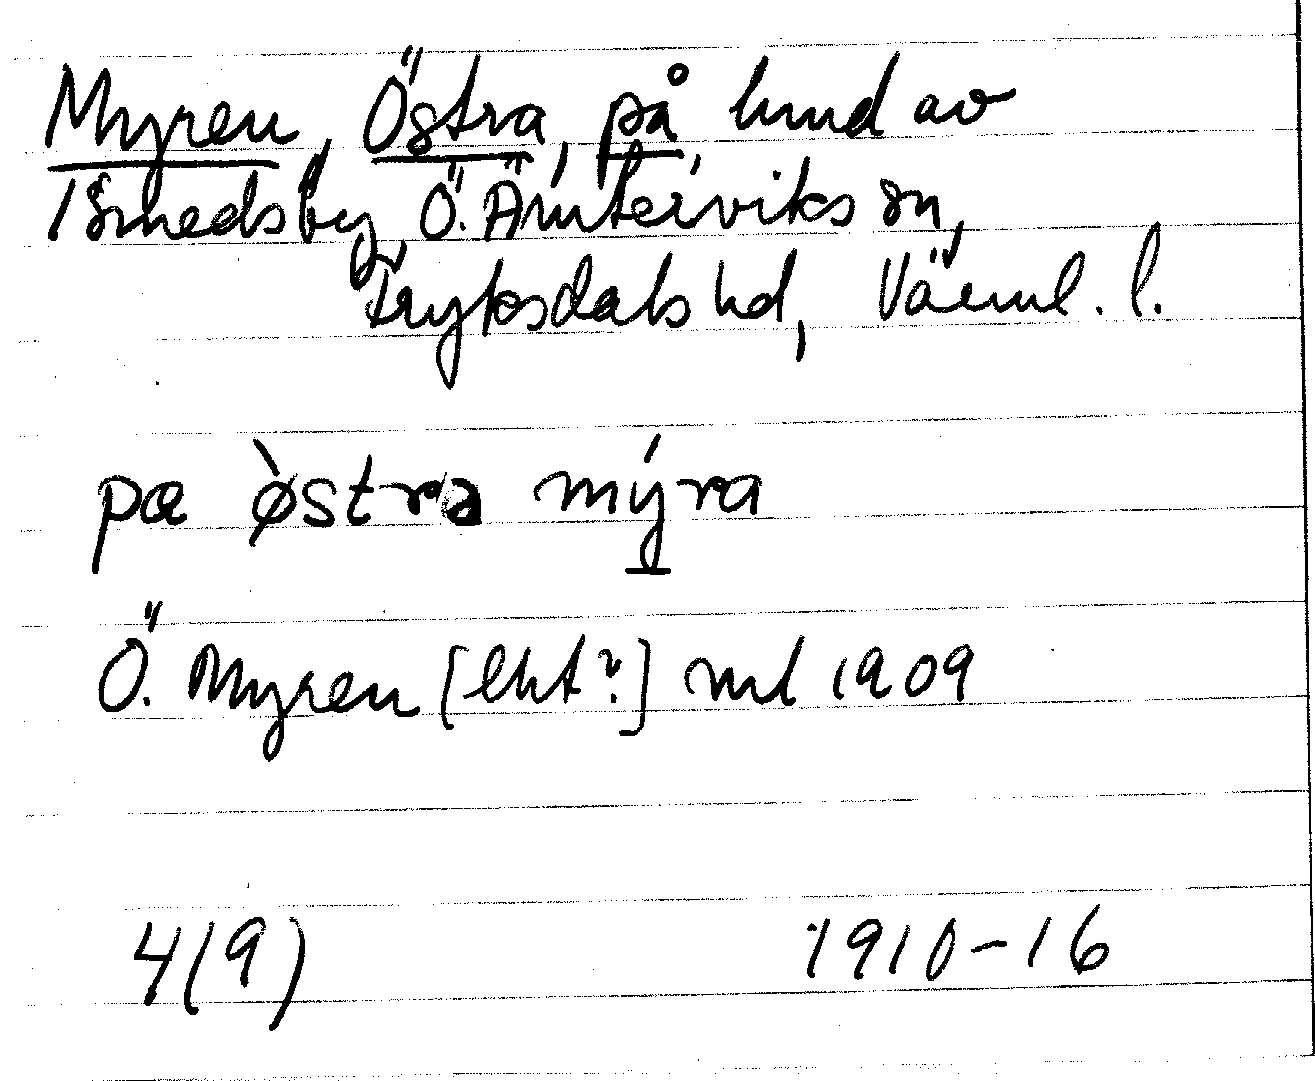 Myren, Östra, på hmd av
1 Smedsby, Ö. Ämterviks sn,
Fryksdals hd, Värml. l.
pa østra mýra
Ö. Myren [lht?] ml 1909
4(9) 1910-16